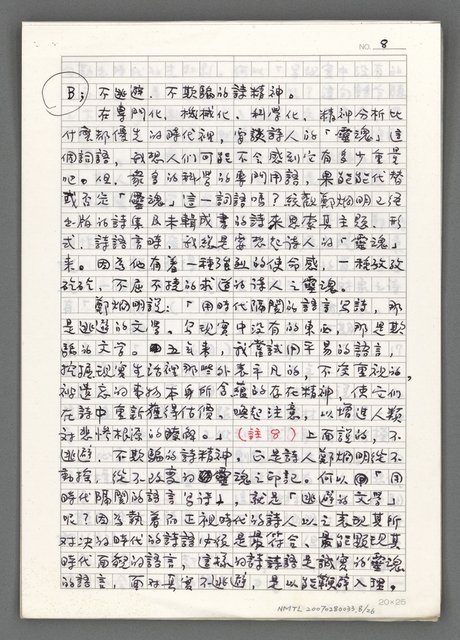 NO. 8
B: 不逃避、不欺騙的詩精神。
在專門化，機械化，科學化，精神分析比
什麼都優先的時代裡，當談詩人的「靈魂」這
個詞語，我想人們可能不会感到它有多少重量
吧。但，最的科學的專門用語，果能代替
或否定「靈魂」這一詞語嗎？綜觀鄭烱明已經
出版的詩集及未輯成書的詩來思索其主題、形
式、詩語言時，我總是要想起詩人的「靈魂」
來。因為他有着一種強烈的使命感，一種孜孜
矻矻、不屈不撓的求道的詩人之靈魂。
鄭烱明說：「用時代隔閡的語言寫詩，那
是逃避的文學。在現實中沒有的東西，那是欺
騙的文学。五年來，我嘗試用平易的語言，
挖掘現實生活裡那些外表平凡的，不受重視的，
被遺忘的事物本身所含蘊的存在精神，使它們
在詩中重新獲得估價，喚起注意，以增進人類
对悲慘根源的瞭解。」（註8）上面說的，不
逃避、不欺騙的詩精神，正是詩人鄭烱明從不
動搖，從不改變的靈魂之印記。何以「用
時代隔閡的語言寫詩」，就是「逃避的文學」
呢？因為執着而正視時代的詩人以之表現其所
对决的時代的詩語必須是最符合、最能點現其
時代面貌的語言，這樣的詩語是誠實的靈魂
的語言，面对真實不逃避，是以能鞭辟入裡。
20×25
NMTL 20070280033,8/26